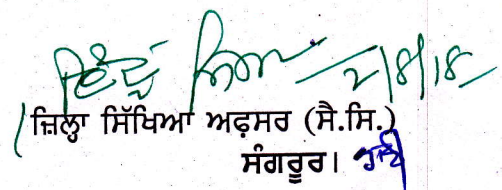 ਇੰਦੂ ਸਿਮਕ 2/8/18
ਜ਼ਿਲ੍ਹਾ ਸਿੱਖਿਆ ਅਫ਼ਸਰ (ਸੈ.ਸਿ.)
ਸੰਗਰੂਰ।